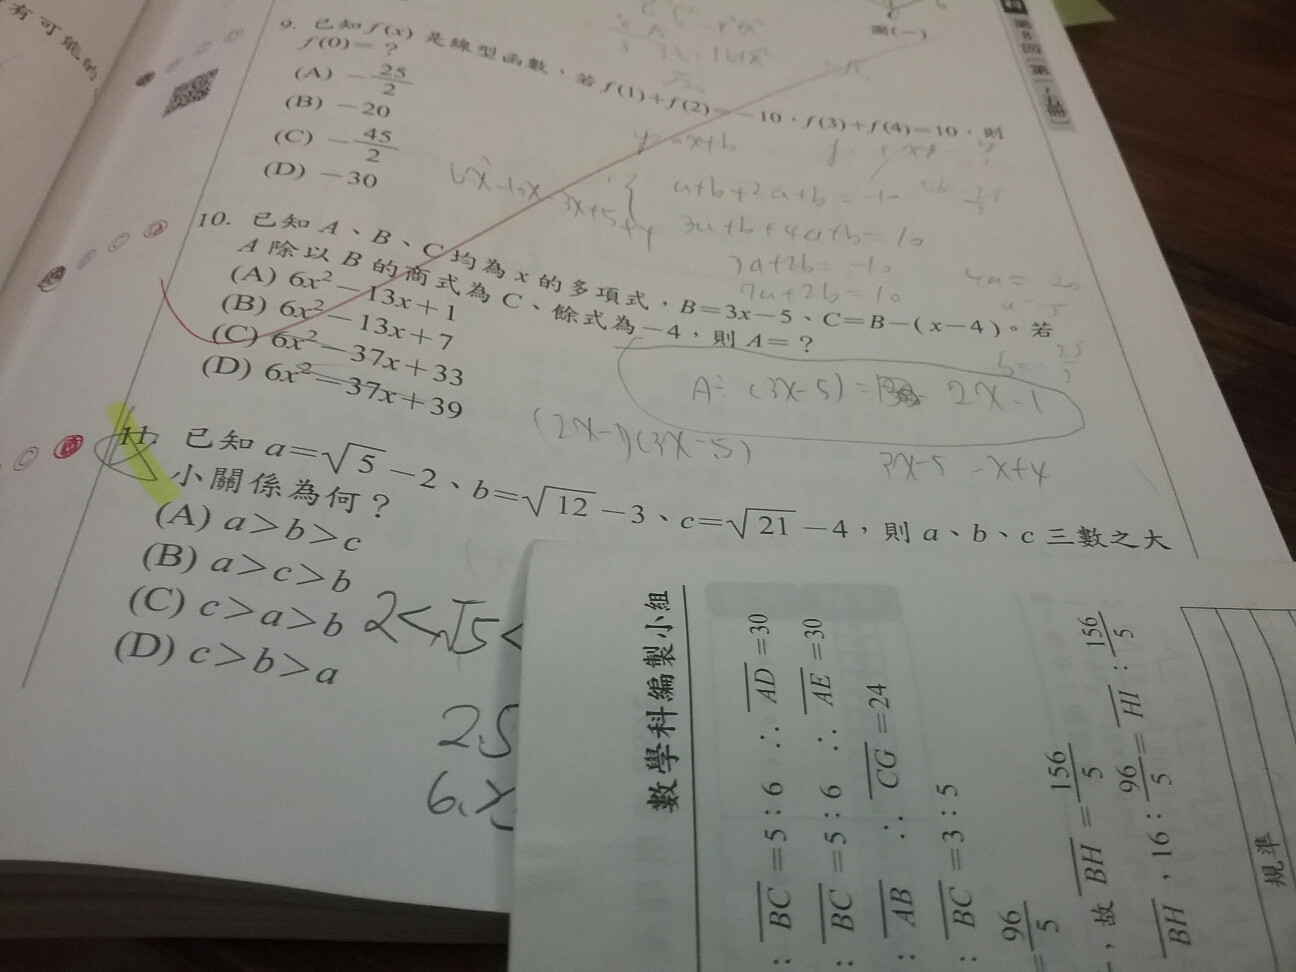 有可能的
圖(一)
9. 已知 f(x) 是線型函數,若 f(1)+f(2)=-10,f(3)+f(4)=10,則
f(0)=?
(A) -25/2
(B) -20
(C) -45/2
(D) -30
y=ax+b
a+b+2a+b=-10
3a+b+4a+b=10
3a+2b=-10
7a+2b=10
10. 已知 A、B、C 均為 x 的多項式,B=3x-5、C=B-(x-4)。若
A 除以 B 的商式為 C、餘式為-4,則 A=?
(A) 6x²-13x+1
(B) 6x²-13x+7
(C) 6x²-37x+33
(D) 6x²-37x+39
A÷(3x-5)= 2x-1
(2x-1)(3x-5)
3x-5 -x+4
11. 已知 a=√5-2、b=√12-3、c=√21-4,則 a、b、c 三數之大
小關係為何?
(A) a>b>c
(B) a>c>b
(C) c>a>b
(D) c>b>a
2<√5<
數學科編製小組
: BC=5:6 ∴ AD=30
: BC=5:6 ∴ AE=30
: AB ∴ CG=24
: BC=3:5
=96/5
,故 BH=156/5
BH,16:96/5=HI:156/5
規準